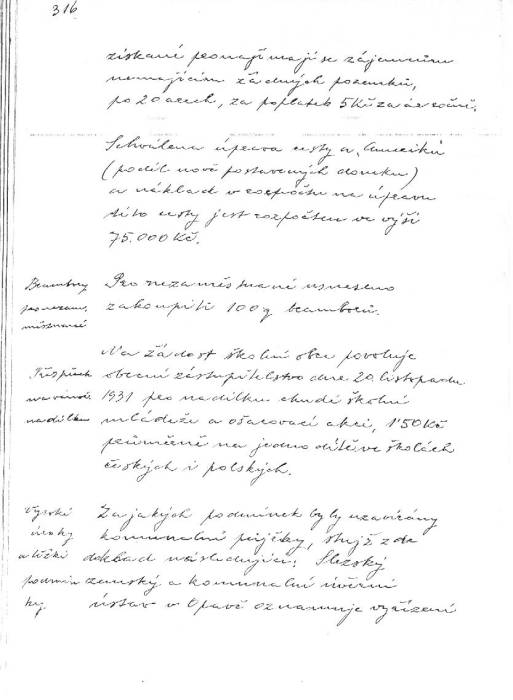 316
získané pronajímají se zájemcům
nemajícím žádných pozemků,
po 20 arech, za poplatek 5 Kč za ár ročně.
Schválena úprava cesty u
(podél nově postavených domků)
a náklad v rozpočtu na úpravu
této cesty jest rozpočten ve výši
75.000 Kč.
Brambory
pro nezam.
městnané
Pro nezaměstnané usneseno
zakoupiti 100 q bramborů.
Příspěvek
na vánoč.
nadílku
Na žádost školní obce povoluje
obecní zastupitelstvo dne 20. listopadu
1931 pro nadílku chudé školní
mládeže a ošacovací akci, 1'50 Kč
průměrně na jedno dítě ve školách
českých i polských.
Vysoké
úroky
a těžké
podmín
ky
Za jakých podmínek byly uzavírány
komunální půjčky, stůjž zde
doklad následující: Slezský
zemský a komunální úvěrní
ústav v Opavě oznamuje vyřízení